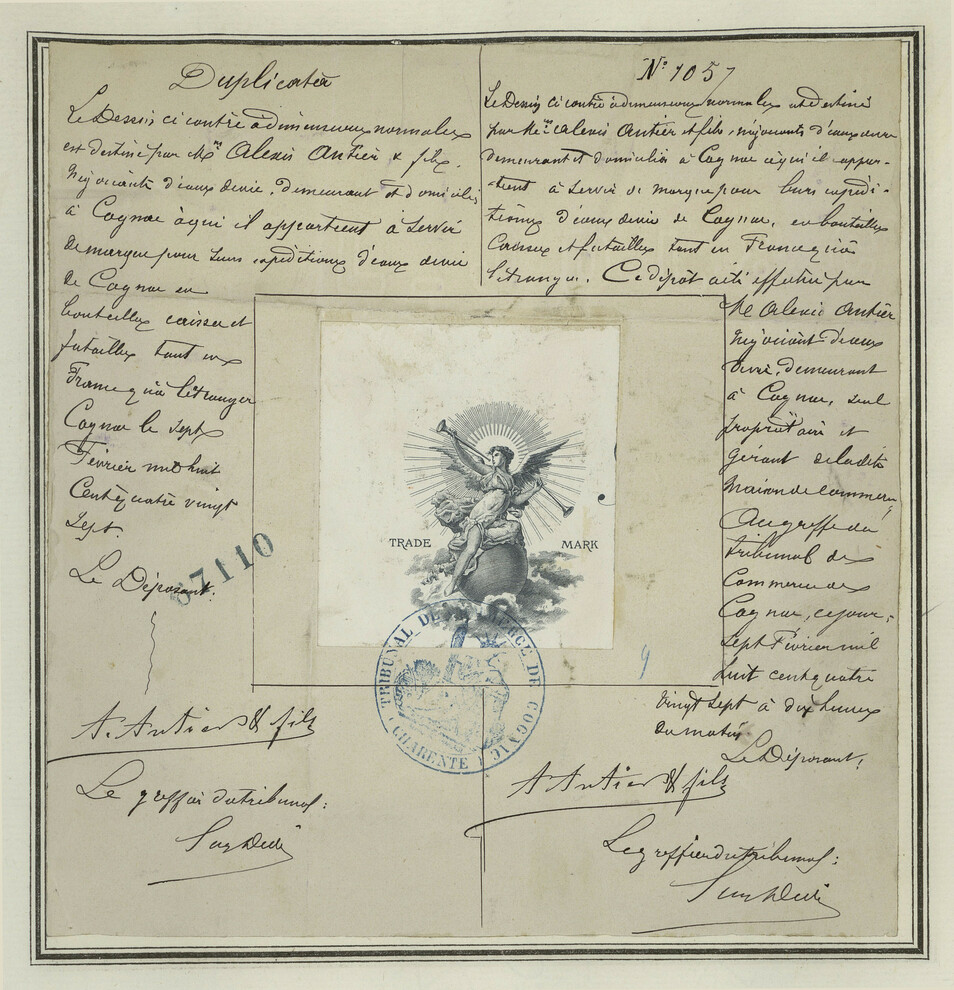 Duplicata
Le Dessin ci contre à dimensions normales
est destiné par Mrs Alexis Antier & fils,
Négociants d'eaux devie, demeurant et domiciliés
à Cognac à qui il appartient à servir
de marque pour leurs expéditions d'eaux devie
de Cognac en
bouteilles caisses et
futailles tant en
France qu'à l'étranger
Cognac le sept
Février mil huit
Cent quatre vingt
sept.
Le Déposant.
57110
A. Antier & fils
Le greffier du tribunal:
No 1057
Le Dessin ci contre à dimensions normales est destiné
par Mrs Alexis Antier et fils, négociants d'eaux devie
demeurant et domiciliés à Cognac à qui il appar-
-tient à servir de marque pour leurs expédi-
tions d'eaux devie de Cognac, en bouteilles
Caisses et futailles tant en France qu'à
l'étranger. Ce dépôt a été effectué par
Mr Alexis Antier
négociant d'eaux
devie, demeurant
à Cognac, seul
propriétaire et
gérant de ladite
Maison de Commerce
Au greffe du
tribunal de
Commerce de
Cognac, ce jour,
sept Février mil
huit cent quatre
vingt sept à dix heures
du matin
Le Déposant,
A Antier & fils
Le greffier du tribunal:
TRADE MARK
TRIBUNAL DE COMMERCE DE COGNAC
(CHARENTE)
9